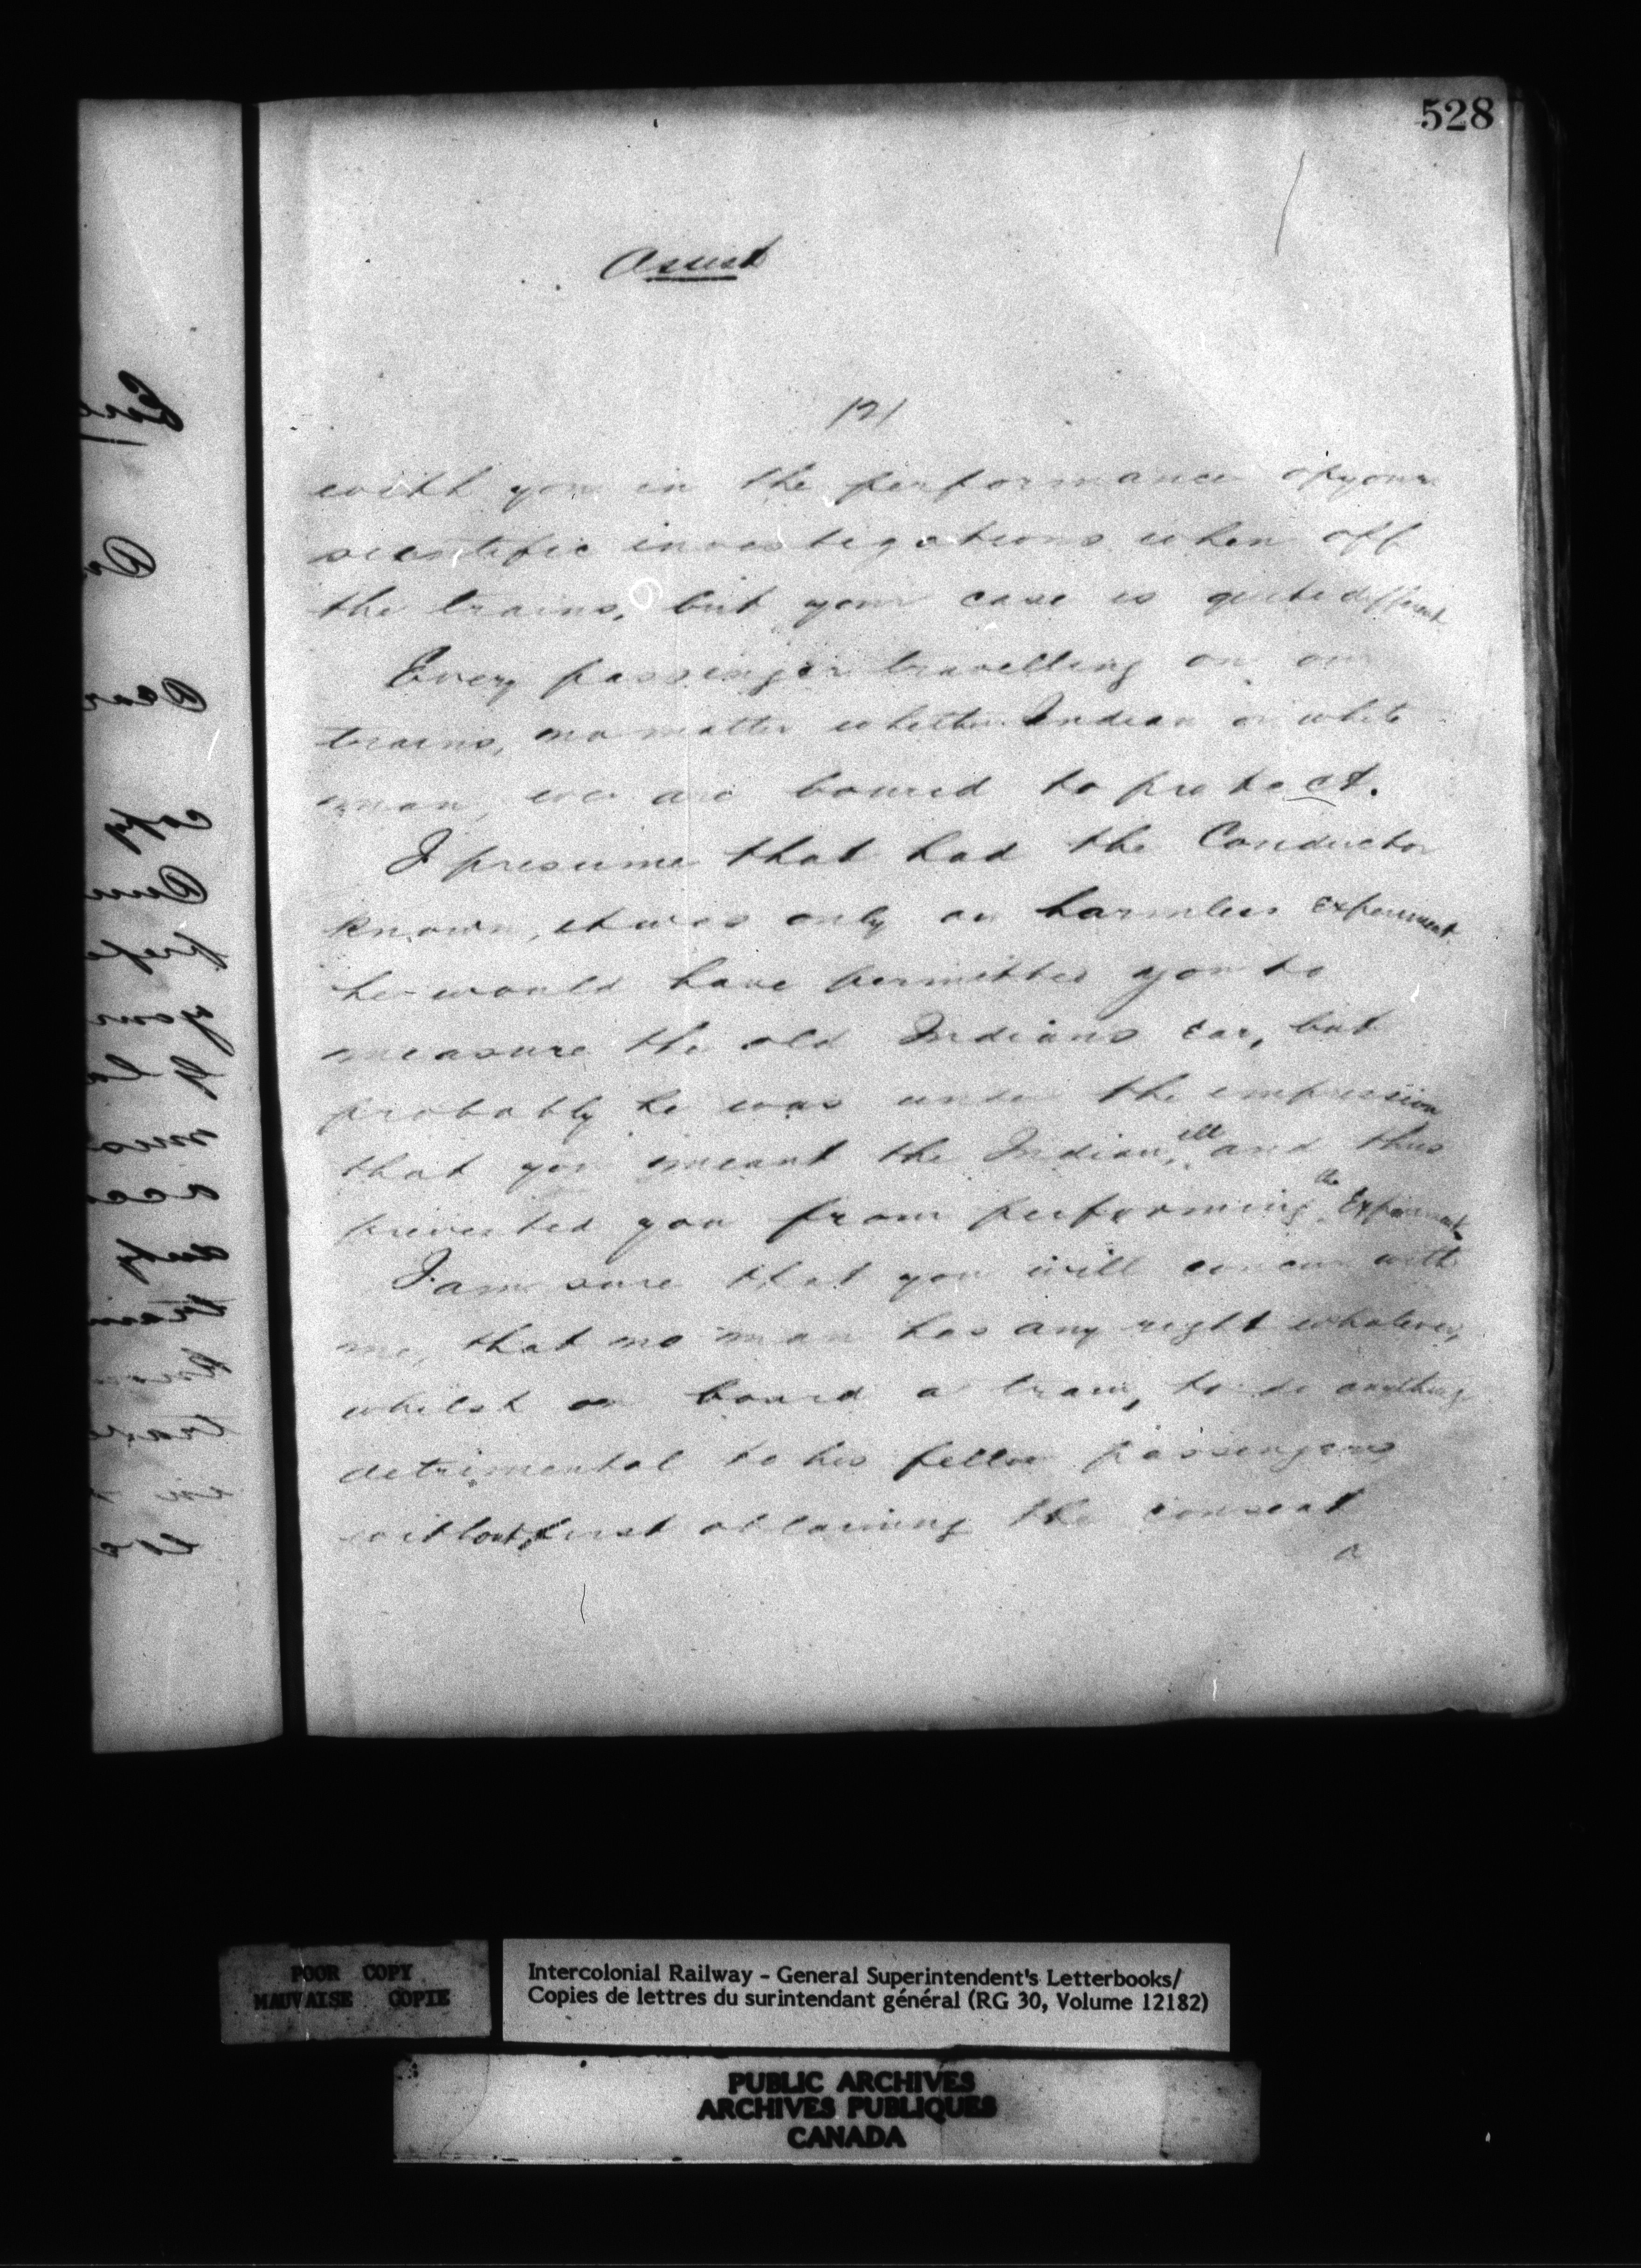 528
Assist
/2/
with you in the performance of your
scientific investigations when off
the trains, but your case is quite different
Every passenger travelling on our
trains, no matter whether Indian or white
man, we are bound to protect.
I presume that had the Conductor
known, it was only an harmless experiment
he would have permitted you to
measure the old Indians ear, but
probably he was under the impression
that you meant the Indian ill and thus
prevented you from performing the Experiment.
I am sure that you will concur with
me, that no man has any right whatever,
whilst on board a train, to do anything
detrimental to his fellow passengers
without first obtaining the consent
POOR COPY
MAUVAISE COPIE
Intercolonial Railway - General Superintendent's Letterbooks/
Copies de lettres du surintendant général (RG 30, Volume 12182)
PUBLIC ARCHIVES
ARCHIVES PUBLIQUES
CANADA